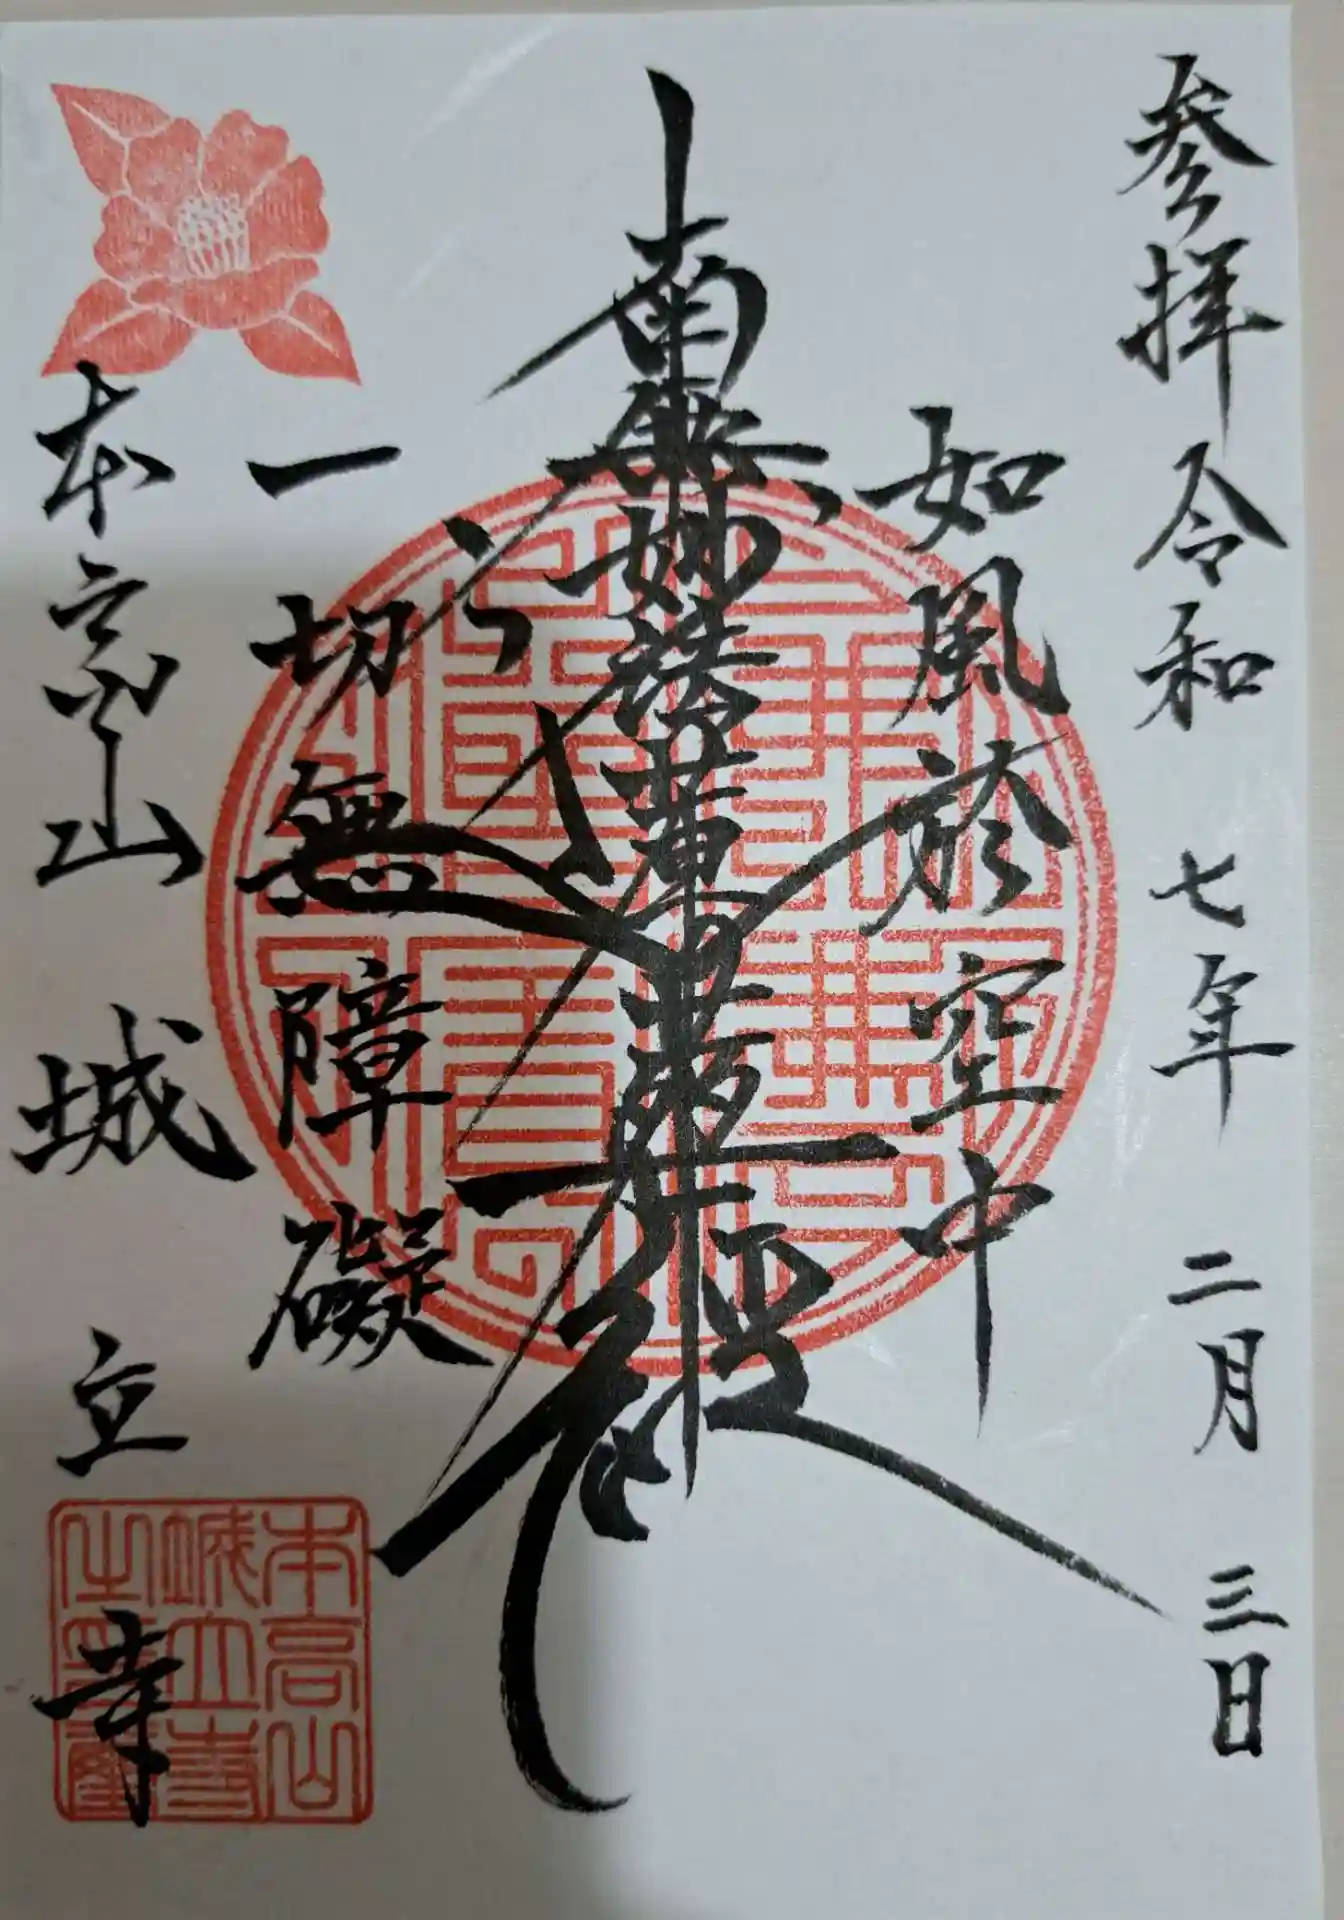 参拝 令和 七年 二月 三日
如風於空中
南無妙法蓮華経
一切無障礙
本高山 城立寺
本高山
城立寺